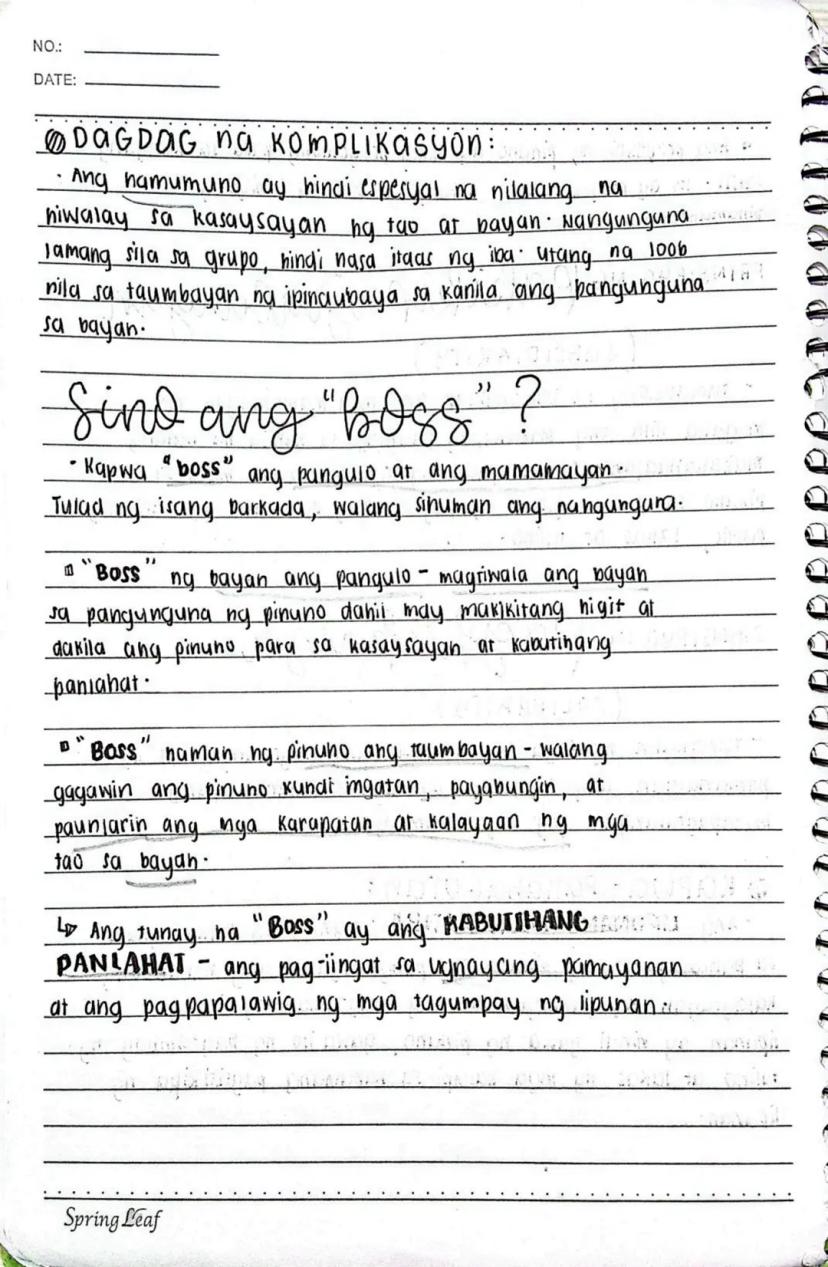 NO.:
DATE:
DAGDAG na KOMPLIKASYON:
· Ang namumuno ay hindi espesyal na nilalang na
hiwalay sa kasaysayan ng tao at bayan. Nangunguna
lamang sila sa grupo, hindi nasa itaas ng iba. Utang na loob
nila sa taumbayan ng ipinaubaya sa kanila ang pangunguna
sa bayan.
Sino ang "boss" ?
· Kapwa "boss" ang pangulo at ang mamamayan.
Tulad ng isang barkada, walang sinuman ang nangunguna.
"Boss" ng bayan ang pangulo - magtiwala ang bayan
sa pangunguna ng pinuno dahil may makikitang higit at
dakila ang pinuno para sa kasaysayan at kabutihang
panlahat.
"Boss" naman ng pinuno ang taumbayan - walang
gagawin ang pinuno kundi ingatan, payabungin, at
paunlarin ang mga karapatan at kalayaan ng mga
tao sa bayan.
↳ Ang tunay na "Boss" ay ang KABUTIHANG
PANLAHAT - ang pag-iingat sa ugnayang pamayanan
at ang pagpapalawig ng mga tagumpay ng lipunan.
Spring Leaf